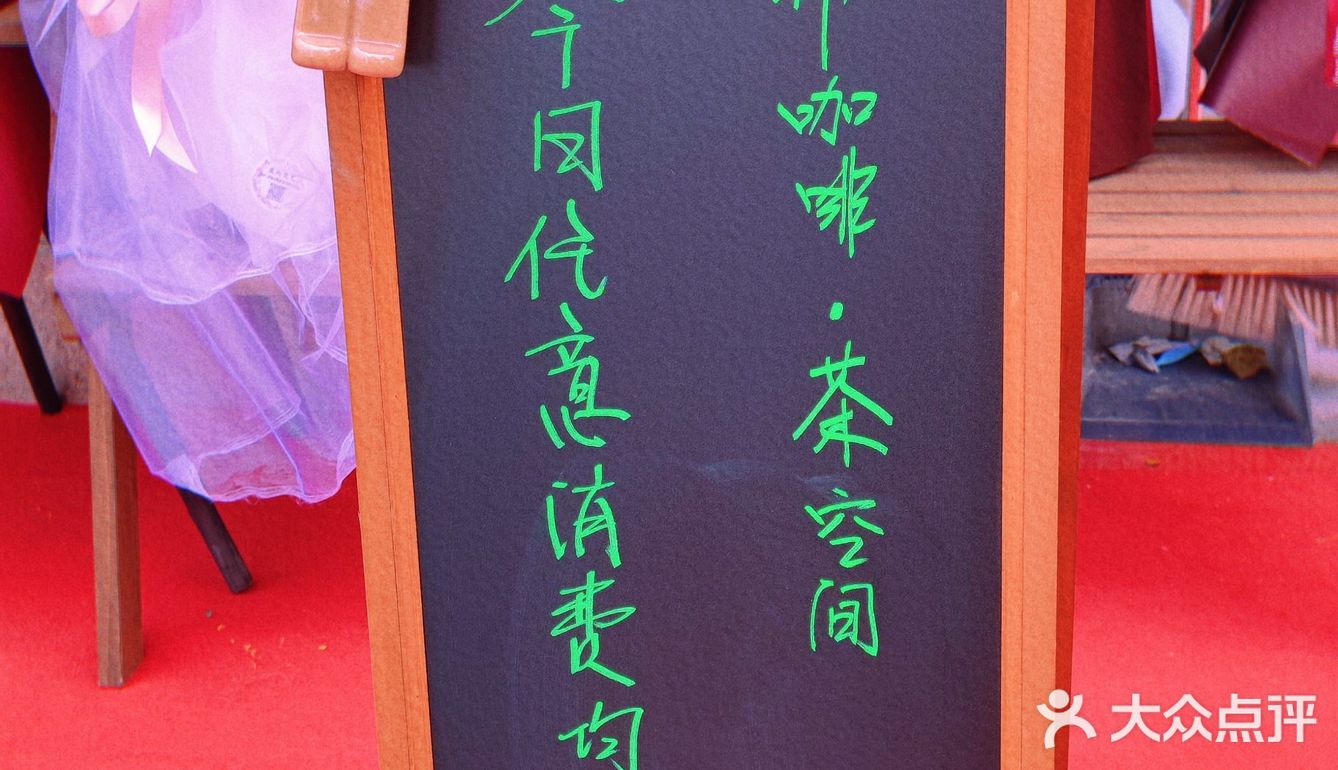 咖啡·茶空间
今日代意消费均
大众点评